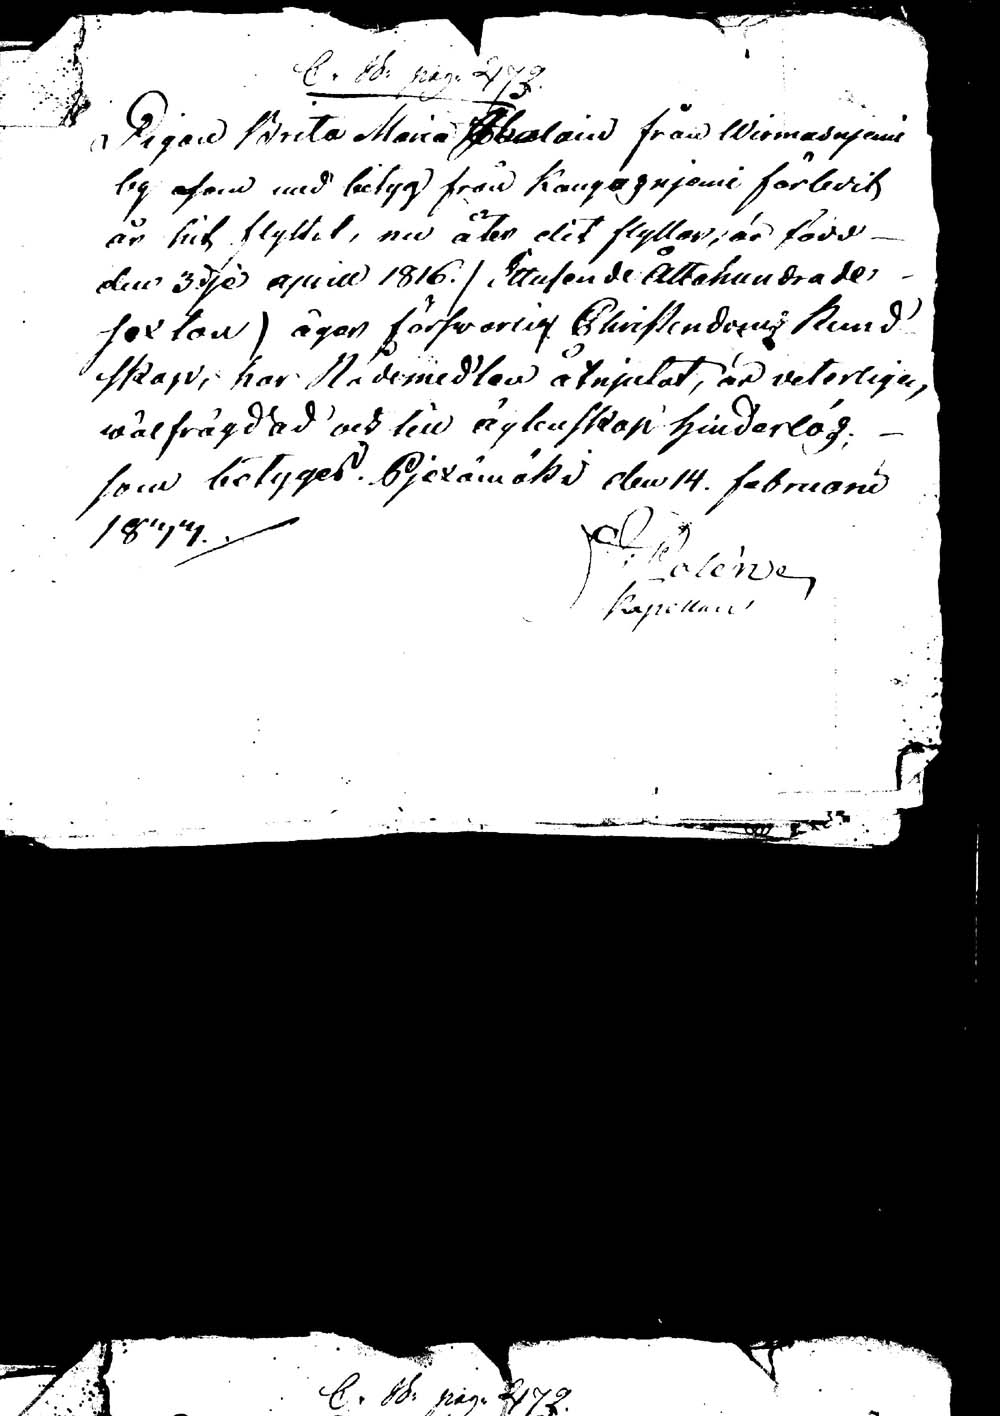 C. B. pag. 473.
Pigan Brita Maria från Wirmasnjemi
by som med betyg från Kangasnjemi förledit
år hit flyttat, nu åter dit flyttar, är född
den 3dje april 1816. / Ettusende Åttahundrade
sexton / äger förswarlig Christendoms kund
skap, har Nådemedlen åtnjutat, är veterligen
wälfrägdad och till ägtenskap hinderlös;
som betygas. Pjexämäki den 14. februarii
1844.
Kapellan
C. B. pag. 473.